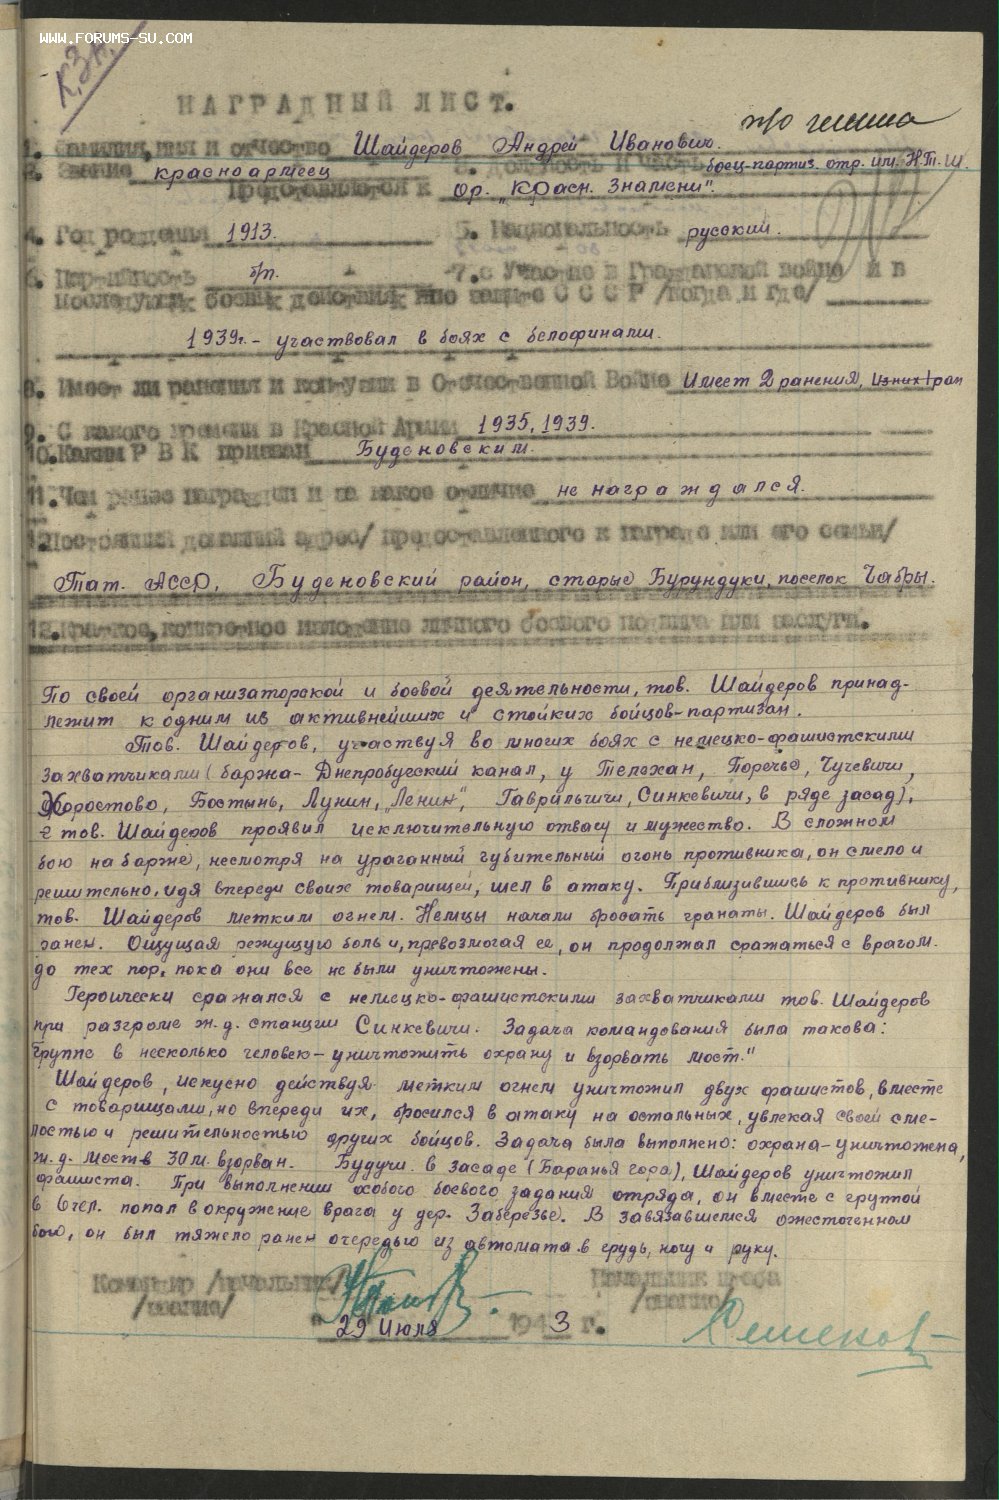 WWW.FORUMS-SU.COM
К.З н.
НАГРАДНЫЙ ЛИСТ.
1. Фамилия, имя и отчество Шайдеров Андрей Иванович.
2. Звание красноармеец 3. Должность и часть боец-партиз. отр. им. Н.Т.Ш.
Представляется к ор. "Красн. Знамени".
4. Год рождения 1913. 5. Национальность русский.
6. Партийность б/п. 7. Участие в Гражданской войне и в
последующих боевых действиях по защите СССР /когда и где/
1939г. - участвовал в боях с белофинами.
8. Имеет ли ранения и контузии в Отечественной Войне Имеет 2 ранения, из них 1 ран
9. С какого времени в Красной Армии 1935, 1939.
10. Каким РВК призван Буденовским.
11. Чем ранее награжден и за какое отличие не награждался.
Постоянный домашний адрес/ представленного к награде или его семьи/
Тат. АССР, Буденовский район, старые Бурундуки, поселок Чабры.
12. Краткое, конкретное изложение личного боевого подвига или заслуги.
По своей организаторской и боевой деятельности, тов. Шайдеров принад-
лежит к одним из активнейших и стойких бойцов-партизан.
Тов. Шайдеров, участвуя во многих боях с немецко-фашистскими
захватчиками (баржа- Днепробугский канал, у Телехан, Поречье, Чучевичи,
Хоростово, Бостынь, Лунин, "Ленин", Гаврильчичи, Синкевичи, в ряде засад),
тов. Шайдеров проявил исключительную отвагу и мужество. В сложном
бою на барже, несмотря на ураганный губительный огонь противника, он смело и
решительно, идя впереди своих товарищей, шел в атаку. Приблизившись к противнику,
тов. Шайдеров метким огнем. Немцы начали бросать гранаты. Шайдеров был
ранен. Ощущая режущую боль и, превозмогая ее, он продолжал сражаться с врагом
до тех пор, пока они все не были уничтожены.
Героически сражался с немецко-фашистскими захватчиками тов. Шайдеров
при разгроме ж.д. станции Синкевичи. Задача командования была такова:
Группе в несколько человек - уничтожить охрану и взорвать мост."
Шайдеров, искусно действуя метким огнем уничтожил двух фашистов, вместе
с товарищами, но впереди их, бросился в атаку на остальных, увлекая своей сме-
лостью и решительностью других бойцов. Задача была выполнено: охрана - уничтожена,
ж.д. мост в 30м. взорван. Будучи в засаде (Баранья гора), Шайдеров уничтожил
фашиста. При выполнении особого боевого задания отряда, он вместе с группой
в 6 чел. попал в окружение врага у дер. Заберезье. В завязавшемся ожесточенном
бою, он был тяжело ранен очередью из автомата в грудь, ногу и руку.
Командир /начальник/ Начальник штаба
/звание/ /звание/
"29 Июля 1943 г.